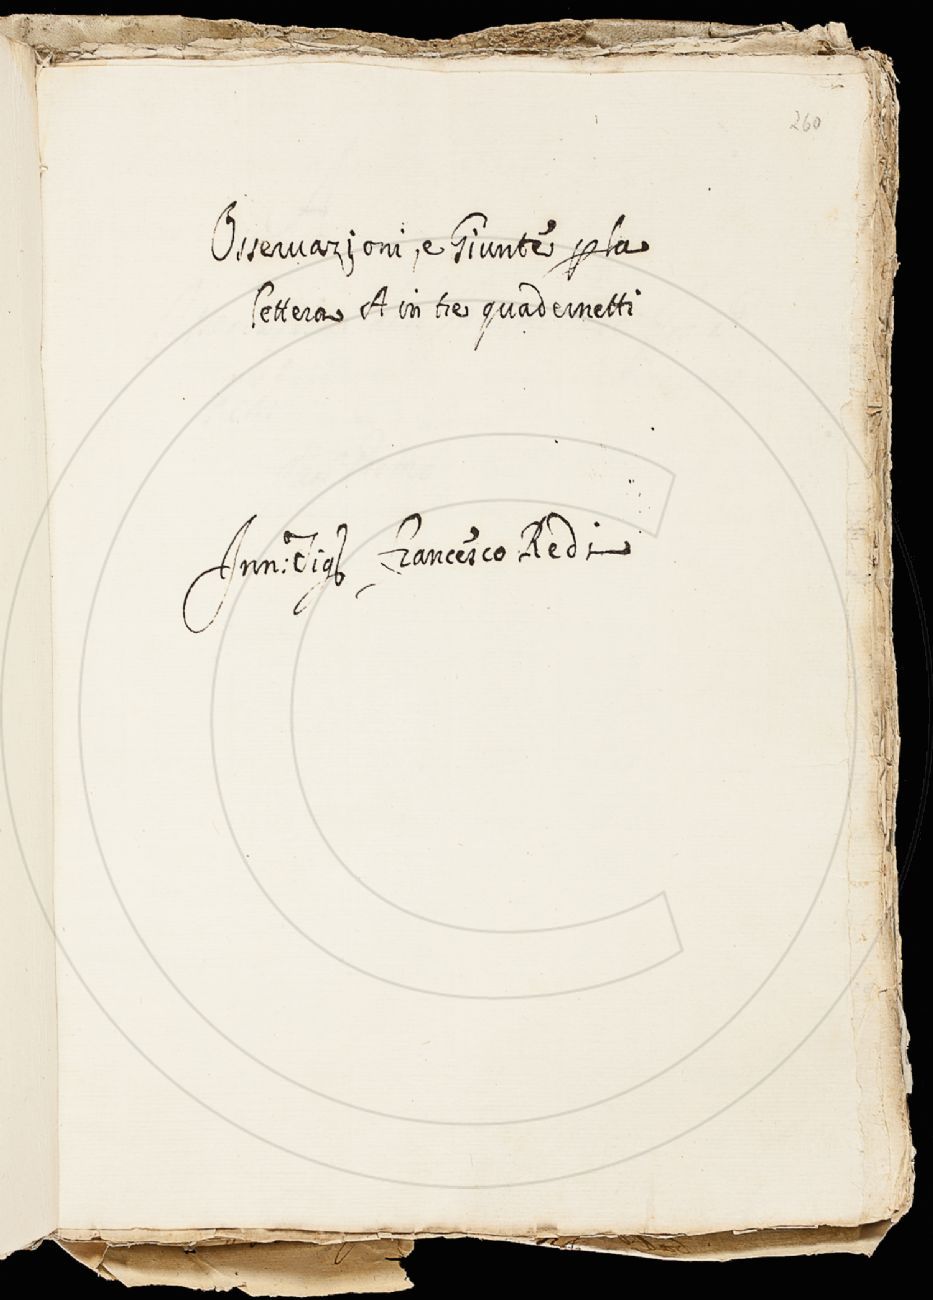 260
Osseruazioni, e Giunte p la
lettera A in tre quadernetti
Inn: Sig.r Francesco Redi